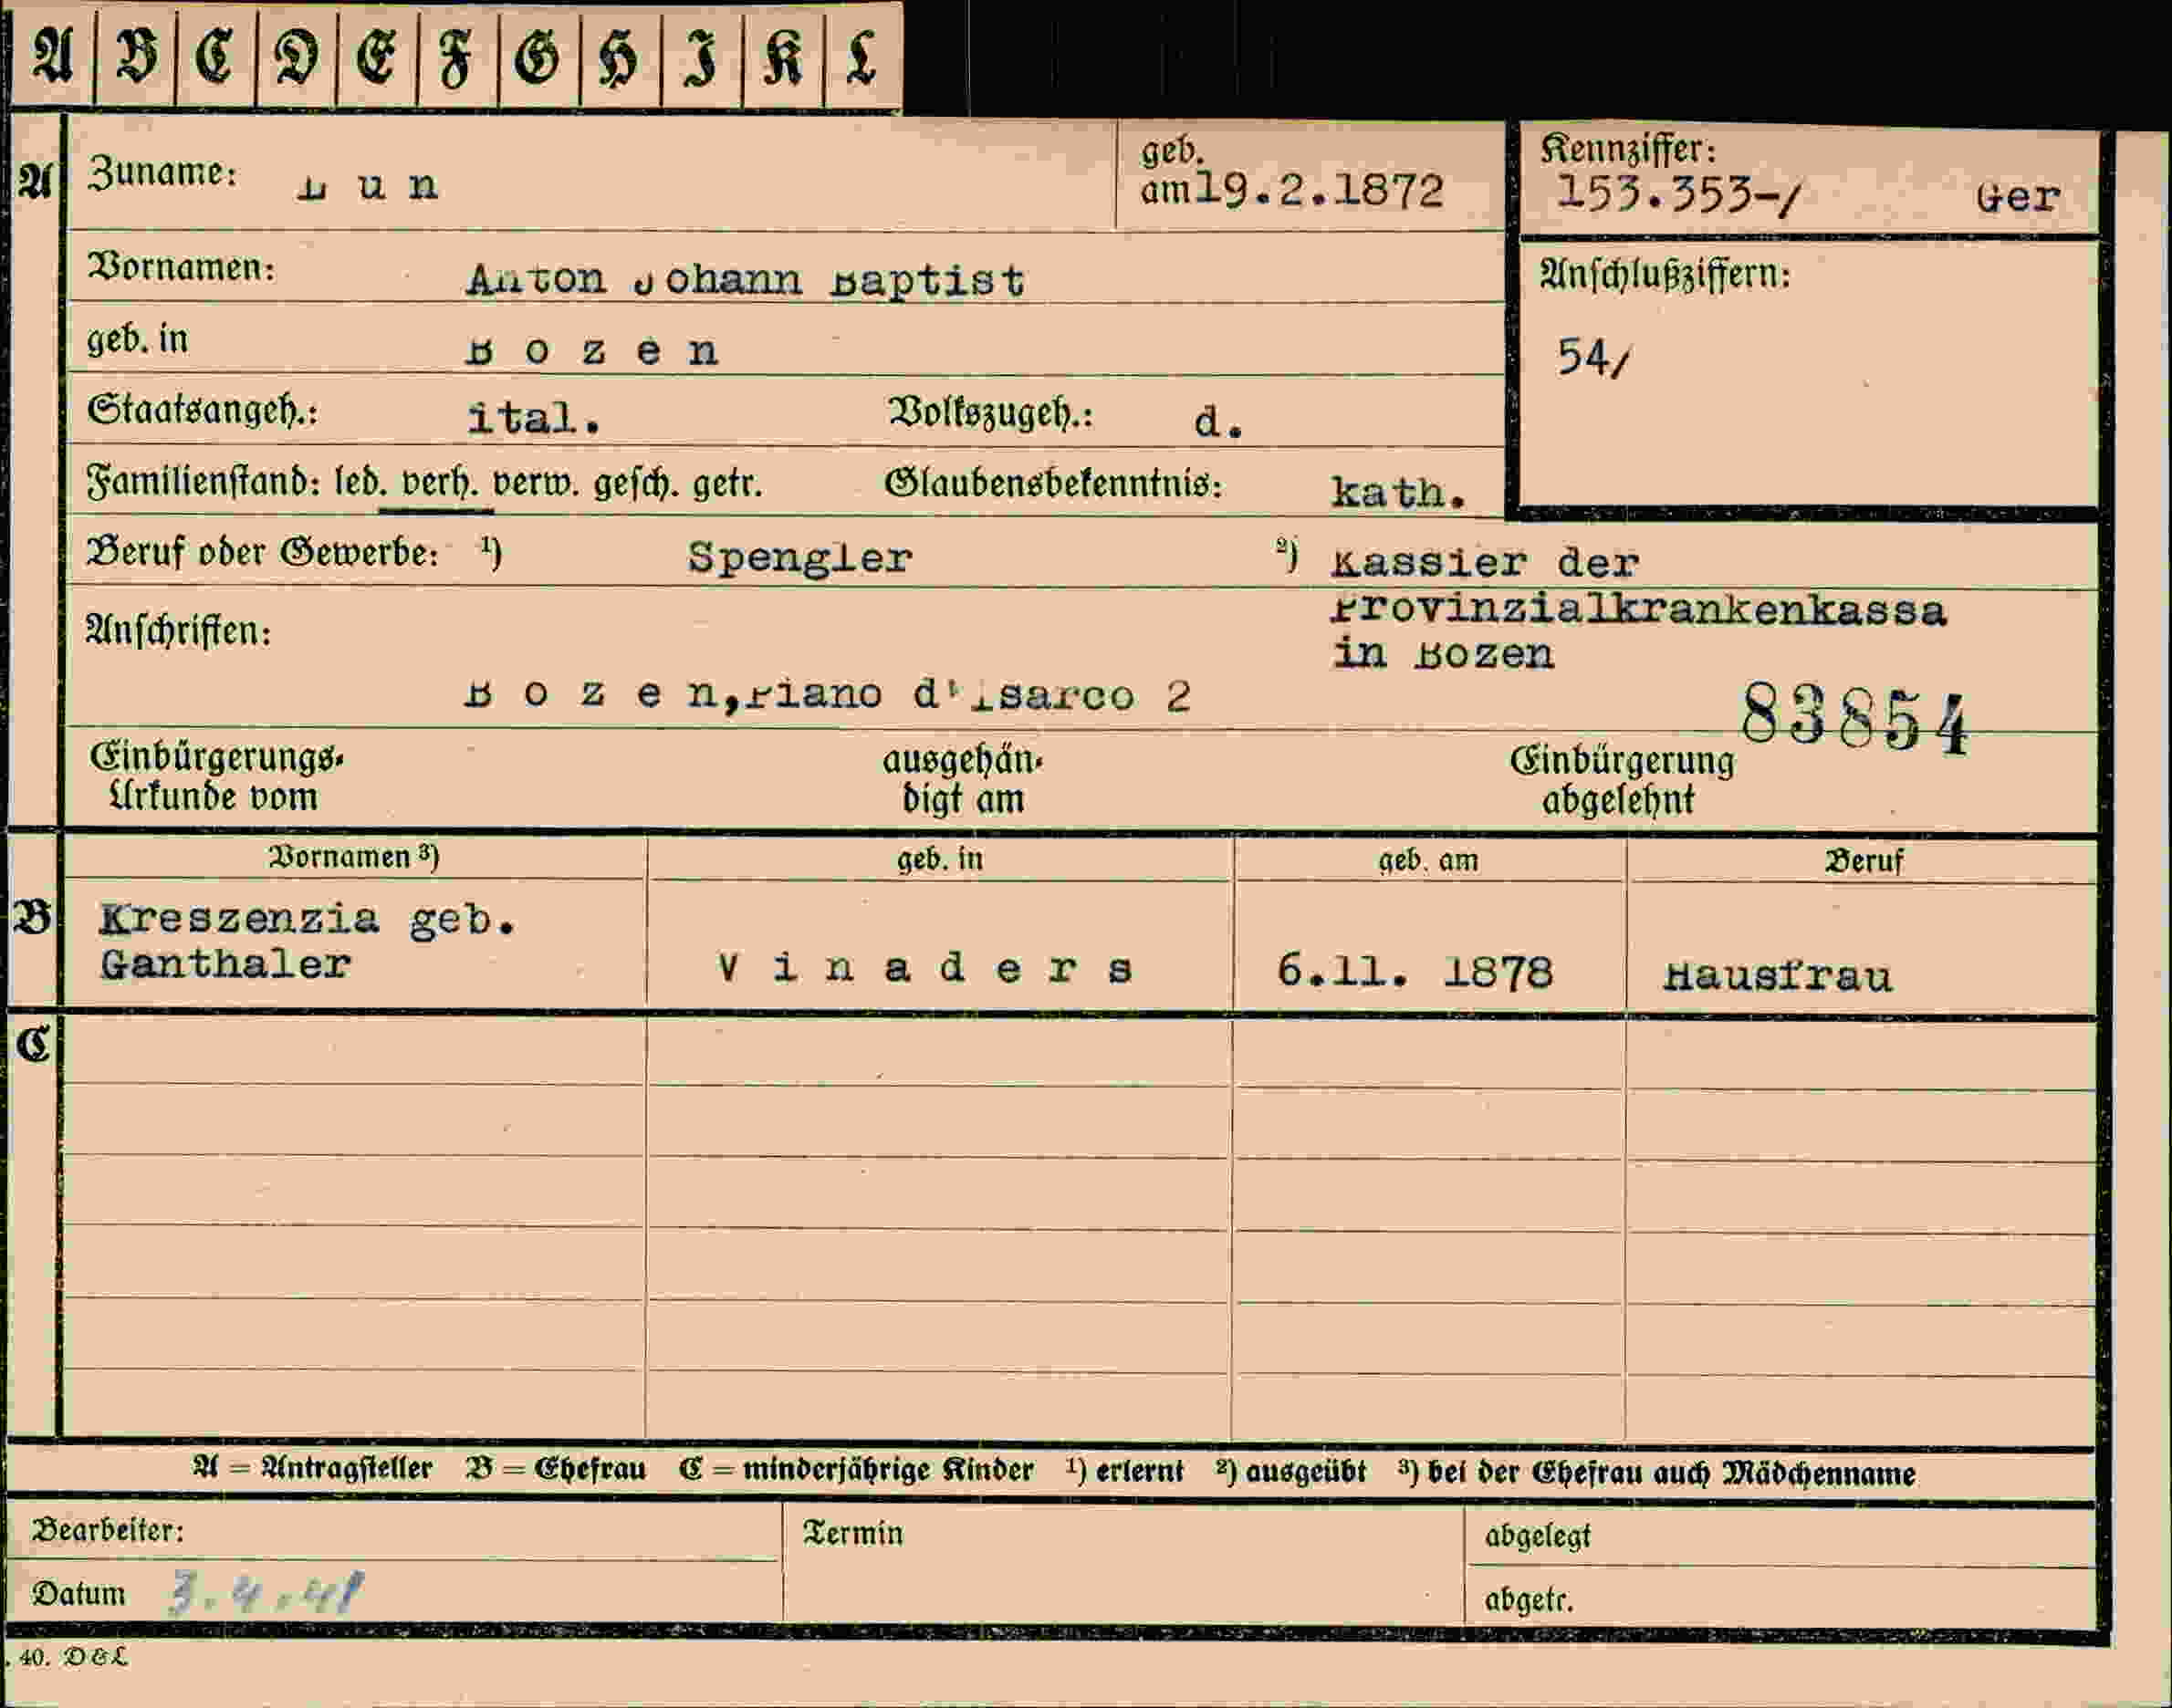 A B C D E F G H I K L
A Zuname: L u n geb. am 19.2.1872 Kennziffer: 153.353-/ Ger
Vornamen: Anton Johann Baptist Anschlußziffern:
geb. in B o z e n 54/
Staatsangeh.: ital. Volkszugeh.: d.
Familienstand: led. verh. verw. gesch. getr. Glaubensbekenntnis: kath.
Beruf oder Gewerbe: 1) Spengler 2) Kassier der
Provinzialkrankenkassa
Anschriften: in Bozen
B o z e n, Piano d'Isarco 2
83854
Einbürgerungs-
Urkunde vom
ausgehän-
digt am
Einbürgerung
abgelehnt
Vornamen 3) geb. in geb. am Beruf
B Kreszenzia geb.
Ganthaler V i n a d e r s 6.11. 1878 Hausfrau
C
A = Antragsteller B = Ehefrau C = minderjährige Kinder 1) erlernt 2) ausgeübt 3) bei der Ehefrau auch Mädchenname
Bearbeiter: Termin abgelegt
Datum 3.4.41 abgetr.
. 40. D & L